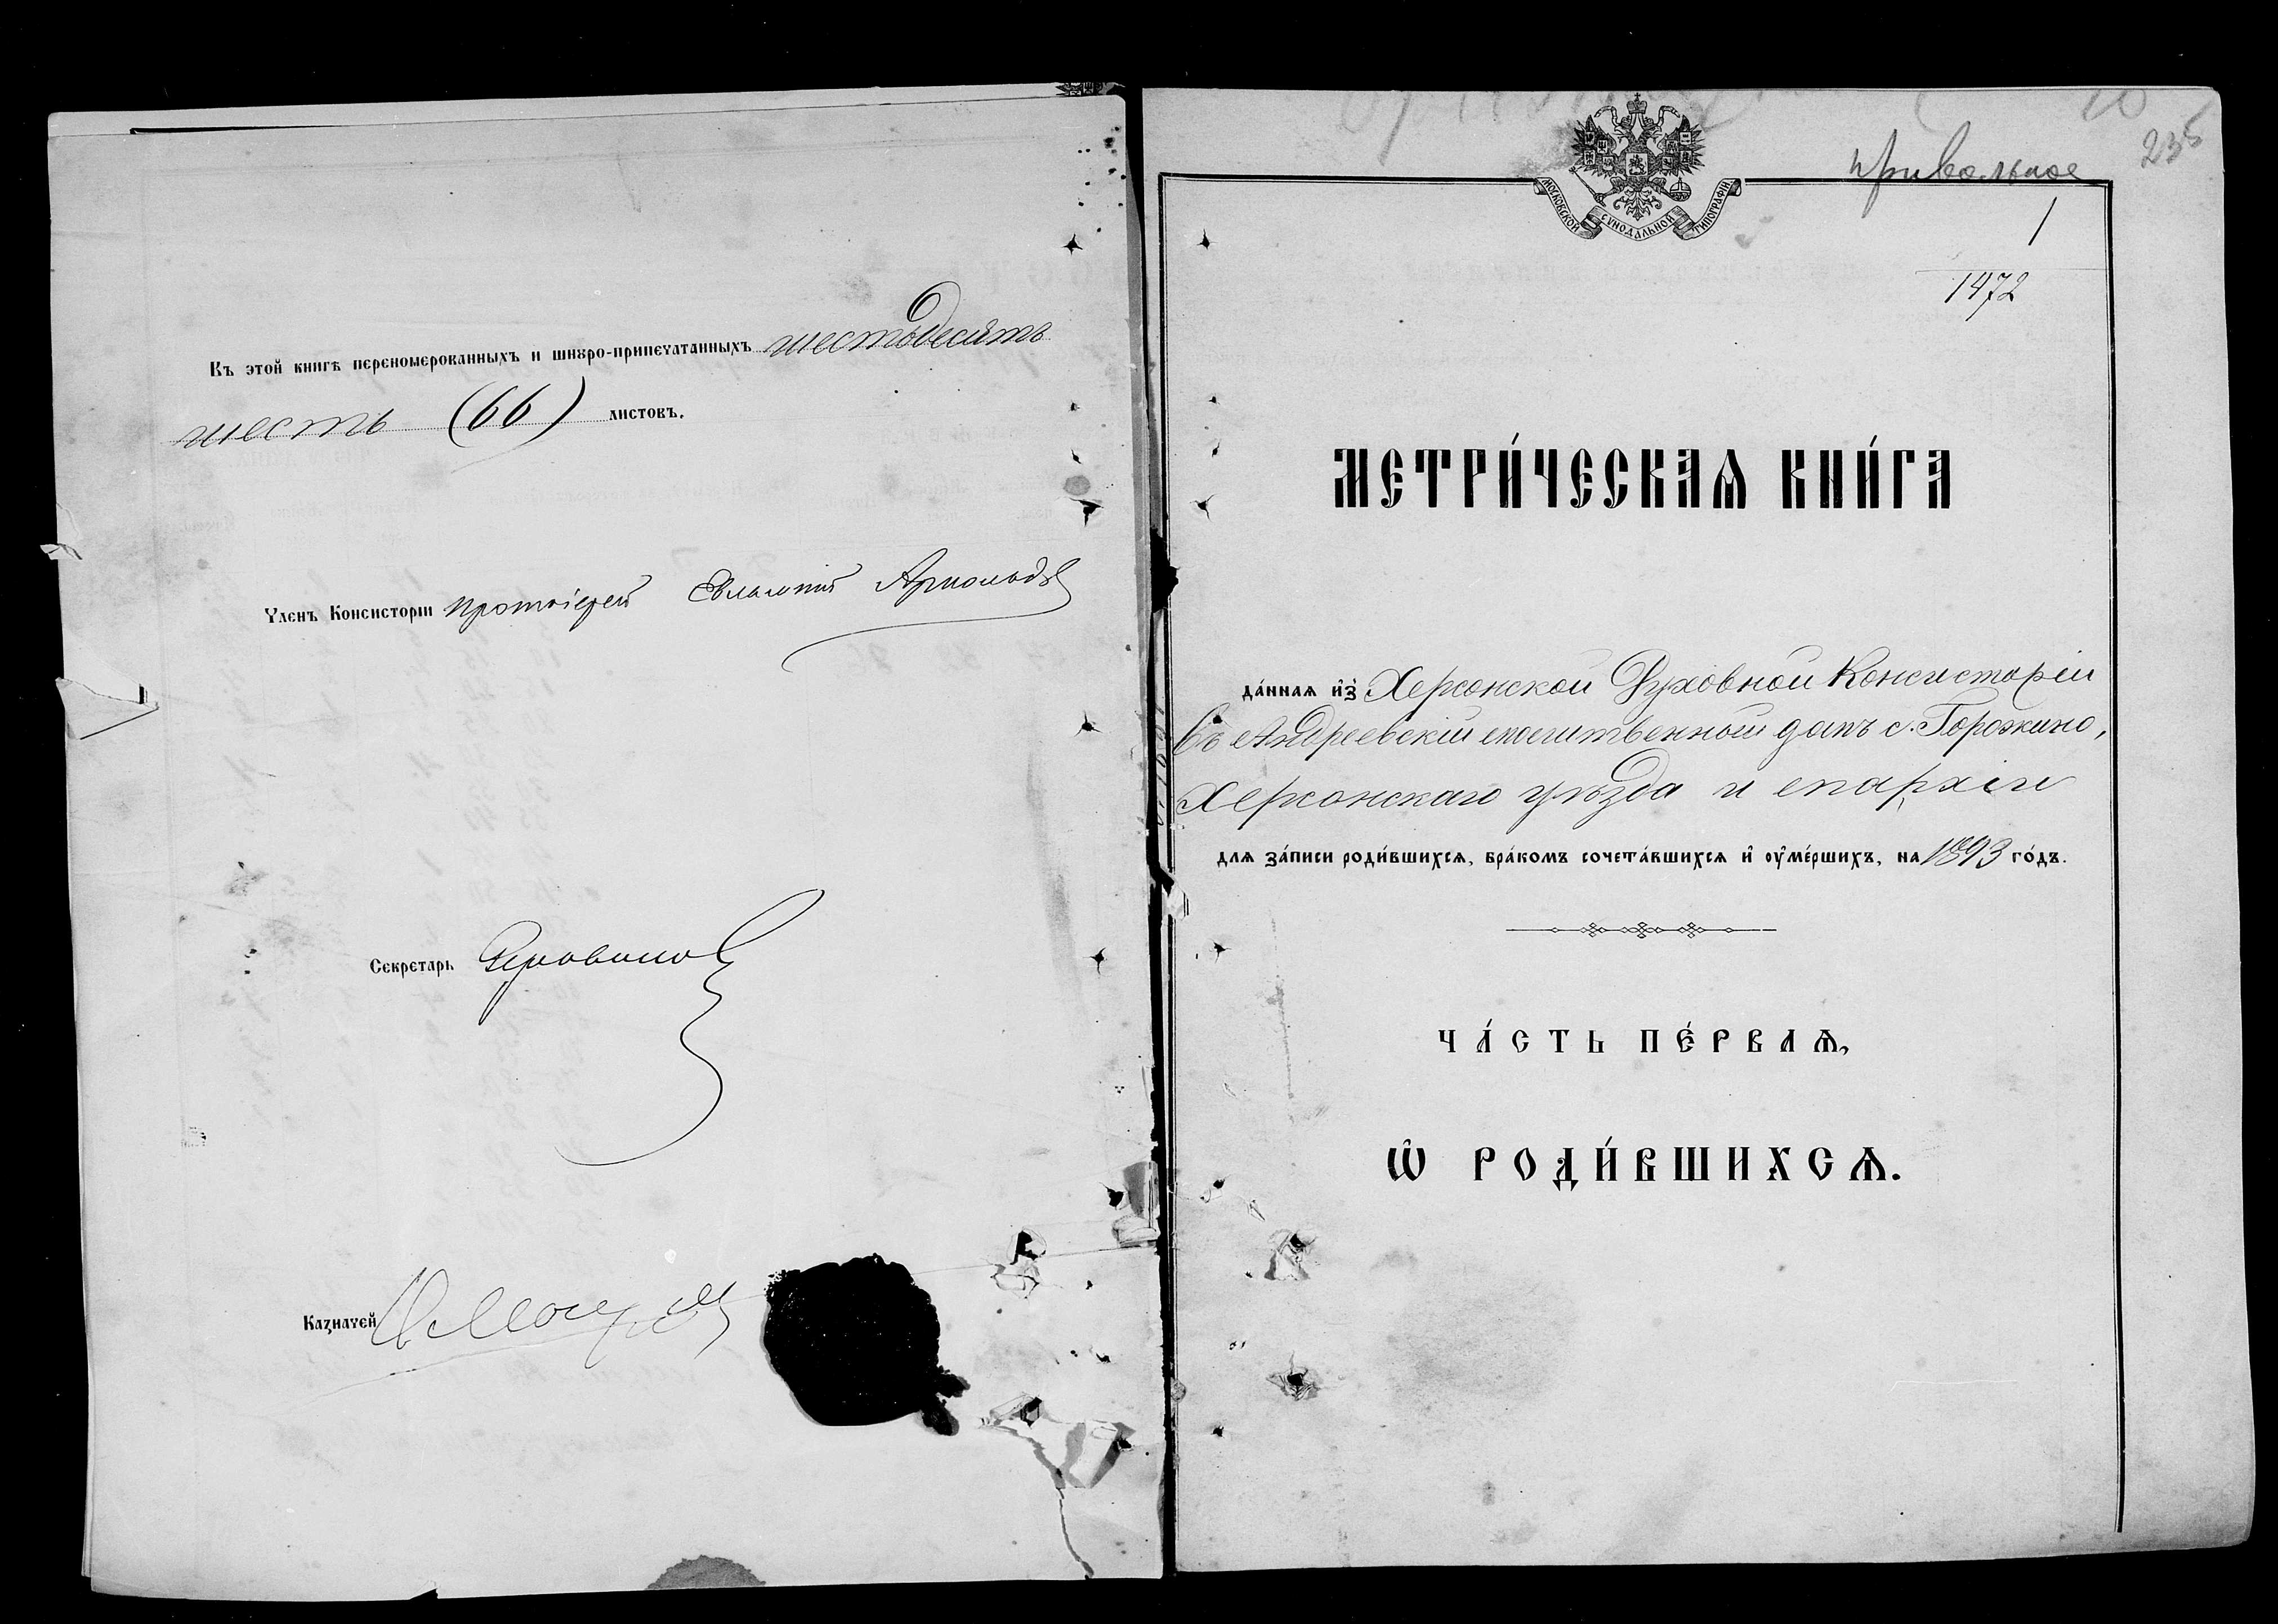 Въ этой книгѣ переномерованныхъ и шнуро-припечатанныхъ шестьдесятъ
шесть (66) листовъ.
Членъ Консисторіи протоіерей Евлампій Арнольдовъ
Секретарь
Казначей
235
Привольное
МОСКОВСКОЙ СѴНОДАЛЬНОЙ ТИПОГРАФІИ
1
1472
МЕТРИ́ЧЕСКАѦ КНИ́ГА
да́нная и҆з̾ Херсонской Духовной Консисторіи
въ Андреевскій молитвенный домъ с. Горожино,
Херсонскаго уѣзда и епархіи
для за́писи роди́вшихся, бра́комъ сочета́вшихся и҆ оу҆ме́ршихъ, на 1893 го́дъ.
ЧА́СТЬ ПЕ́РВАѦ,
Ѡ҆ РОДИ́ВШИХСѦ.